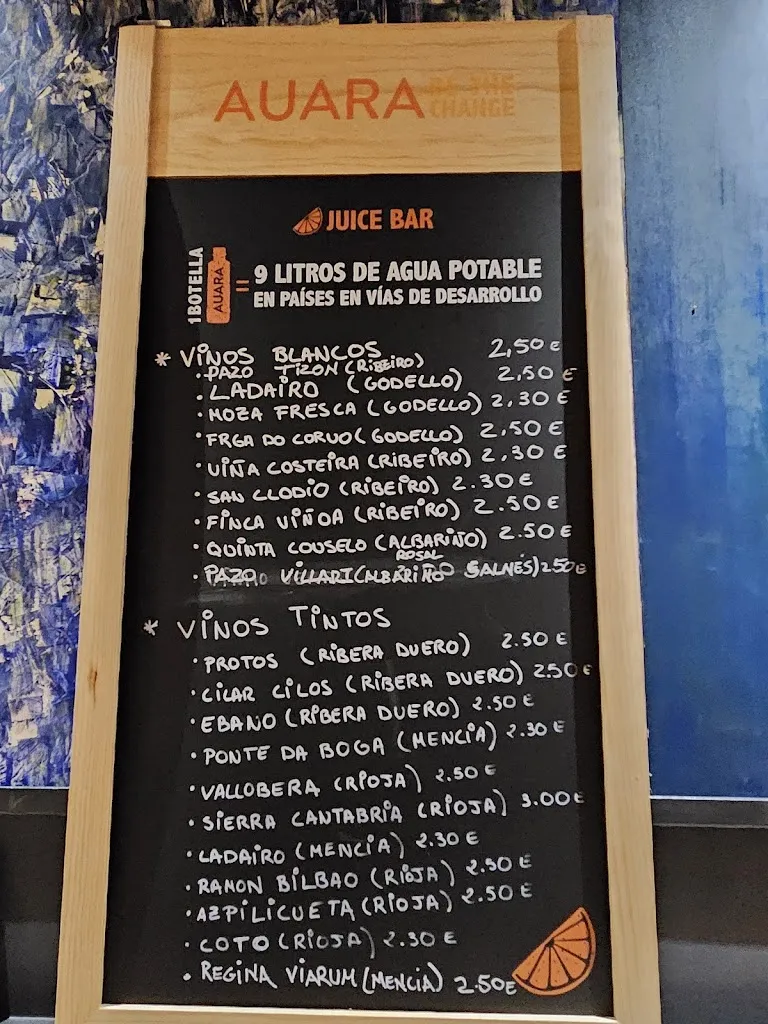 AUARA BE THE CHANGE
JUICE BAR
1 BOTELLA AUARA = 9 LITROS DE AGUA POTABLE
EN PAÍSES EN VÍAS DE DESARROLLO
* VINOS BLANCOS
• PAZO TIZON (RIBEIRO) 2,50 €
• LADAIRO (GODELLO) 2,50 €
• MOZA FRESCA (GODELLO) 2,30 €
• FRGA DO CORVO (GODELLO) 2.50 €
• VIÑA COSTEIRA (RIBEIRO) 2.30 €
• SAN CLODIO (RIBEIRO) 2.30 €
• FINCA VIÑOA (RIBEIRO) 2.50 €
• QUINTA COUSELO (ALBARIÑO ROSAL) 2.50 €
• PAZO VILLAREI (ALBARIÑO SALNES) 2.50 €
* VINOS TINTOS
• PROTOS (RIBERA DUERO) 2.50 €
• CILAR CILOS (RIBERA DUERO) 2.50 €
• EBANO (RIBERA DUERO) 2.50 €
• PONTE DA BOGA (MENCIA) 2.30 €
• VALLOBERA (RIOJA) 2.50 €
• SIERRA CANTABRIA (RIOJA) 3.00 €
• LADAIRO (MENCIA) 2.30 €
• RAMON BILBAO (RIOJA) 2.50 €
• AZPILICUETA (RIOJA) 2.50 €
• COTO (RIOJA) 2.30 €
• REGINA VIARUM (MENCIA) 2.50 €